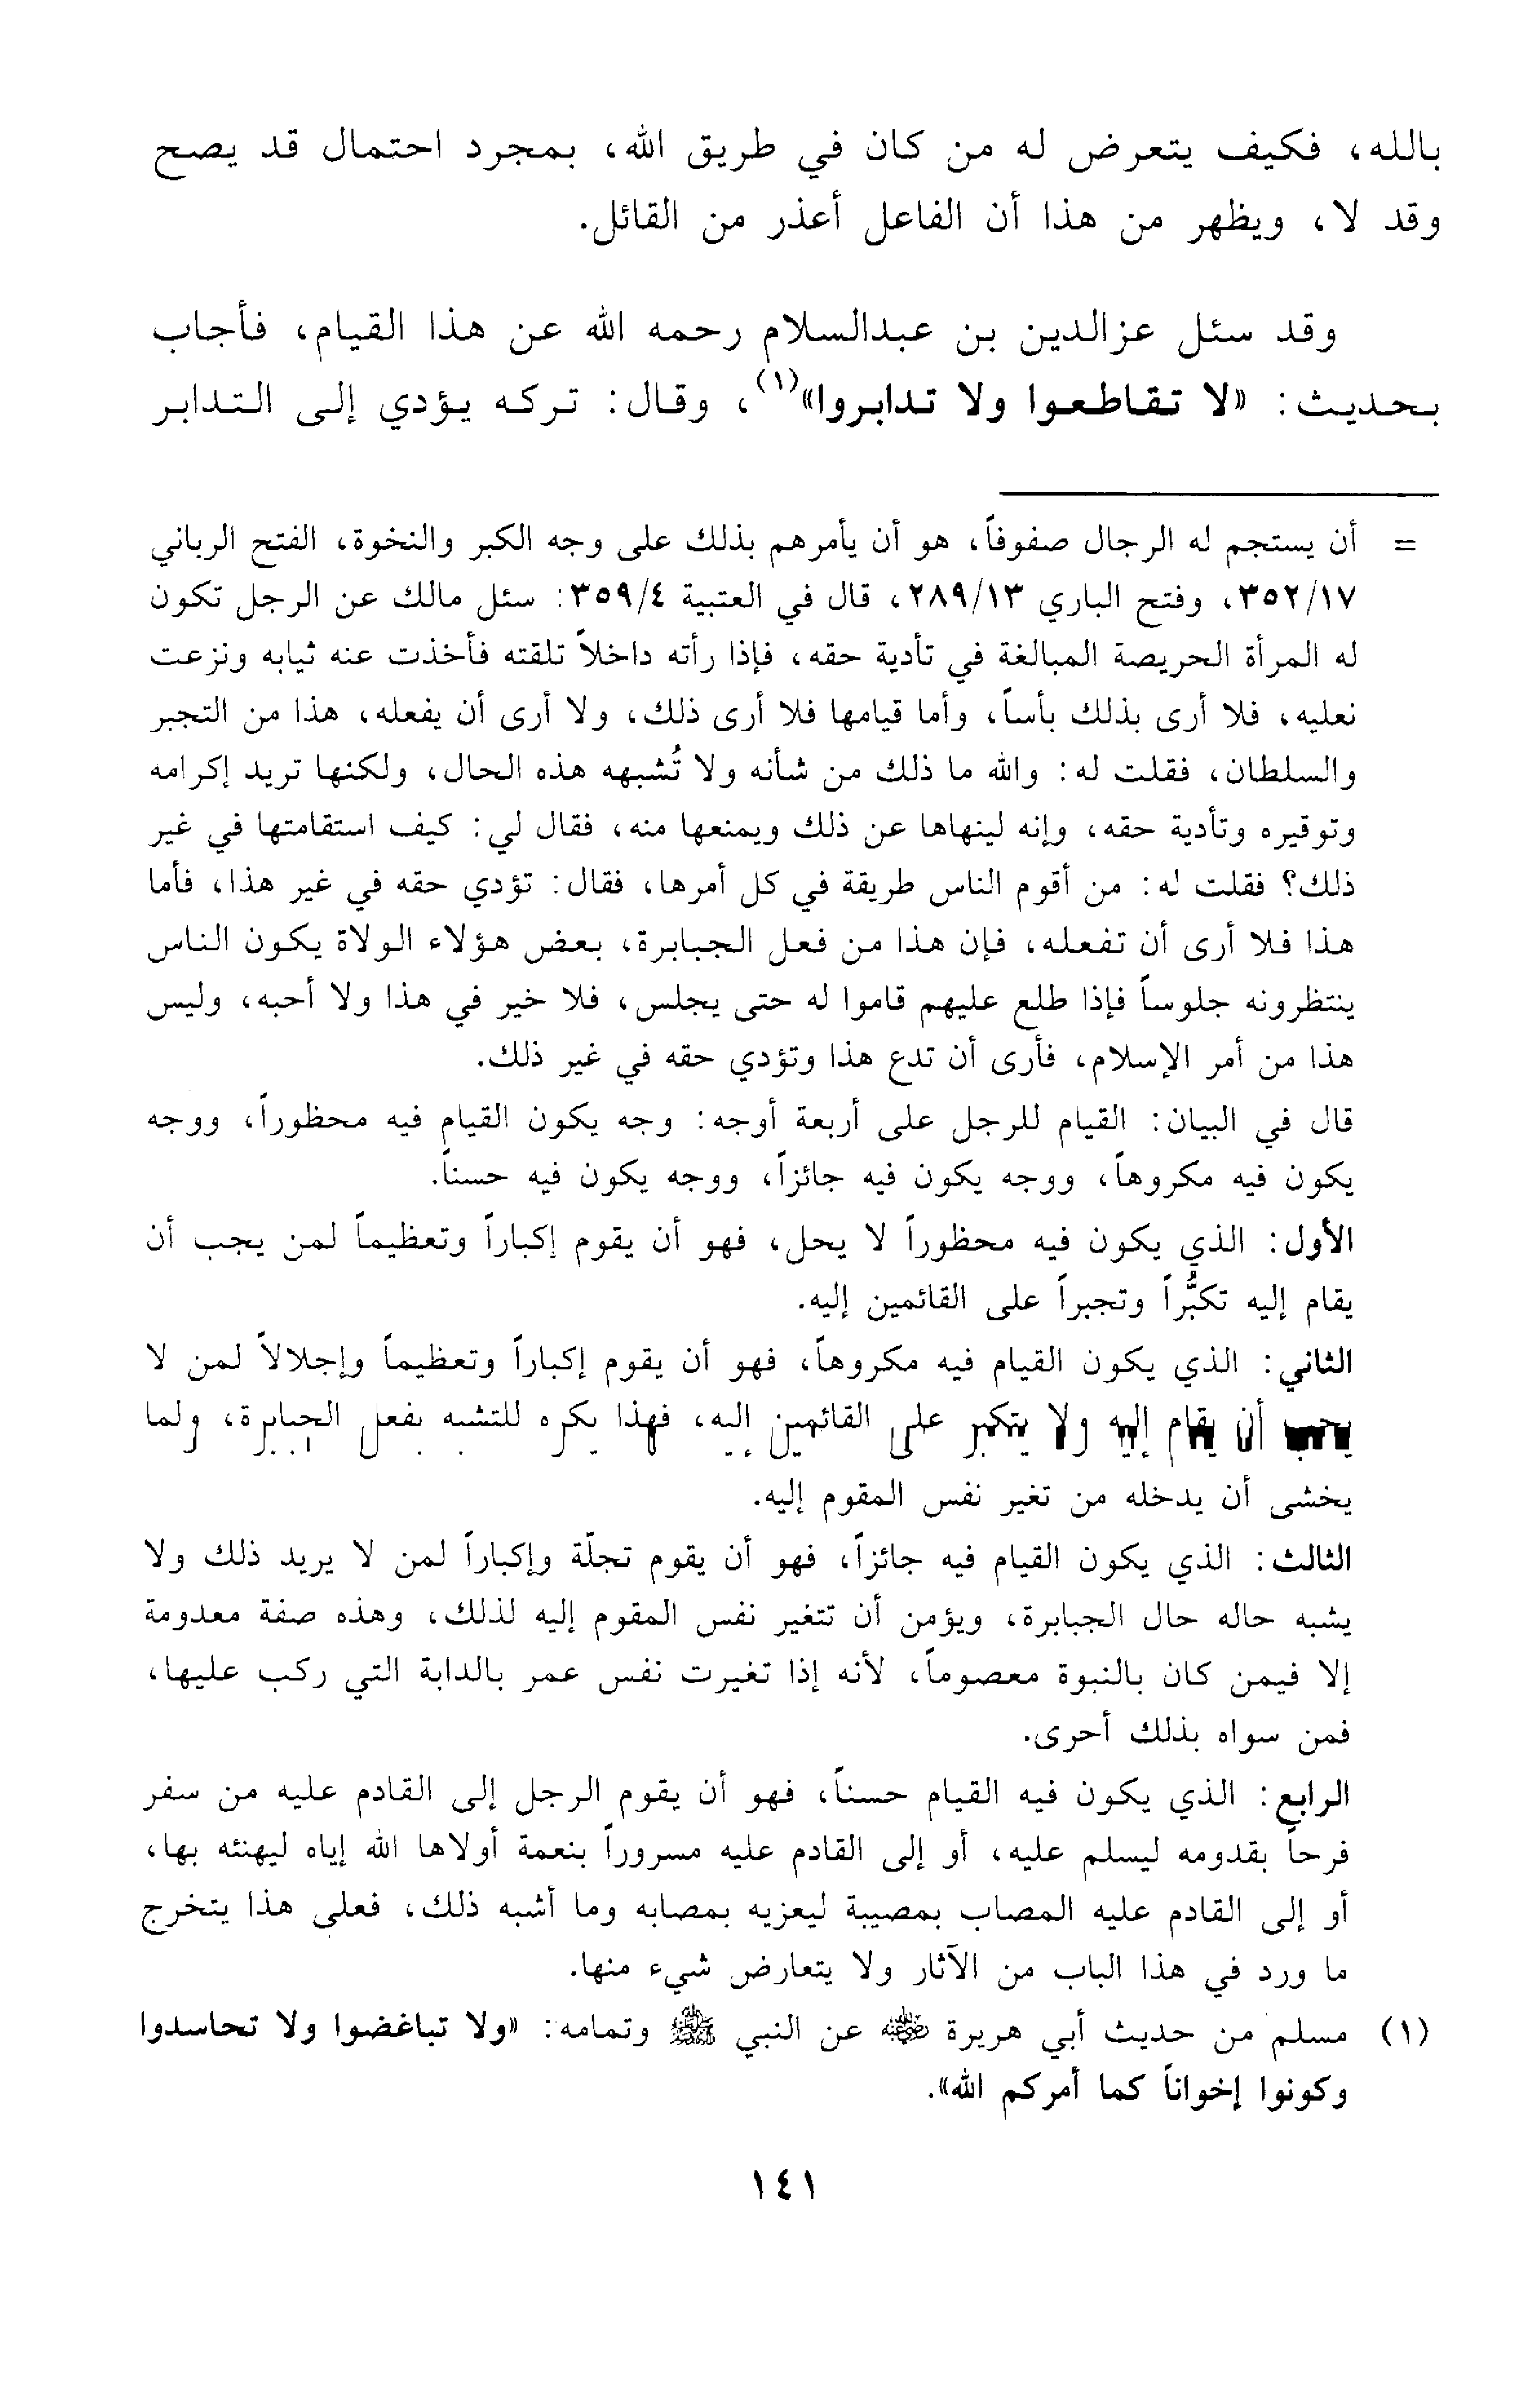 بالله، فكيف يتعرض له من كان في طريق الله، بمجرد احتمال قد يصح
وقد لا، ويظهر من هذا أن الفاعل أعذر من القائل.
وقد سئل عزالدين بن عبدالسلام رحمه الله عن هذا القيام، فأجاب
بحديث: «لا تقاطعوا ولا تدابروا»(١)، وقال: تركه يؤدي إلى التدابر
= أن يستجم له الرجال صفوفاً، هو أن يأمرهم بذلك على وجه الكبر والنخوة، الفتح الرباني
٣٥٢/١٧، وفتح الباري ٢٨٩/١٣، قال في العتبية ٣٥٩/٤: سئل مالك عن الرجل تكون
له المرأة الحريصة المبالغة في تأدية حقه، فإذا رأته داخلاً تلقته فأخذت عنه ثيابه ونزعت
نعليه، فلا أرى بذلك بأساً، وأما قيامها فلا أرى ذلك، ولا أرى أن يفعله، هذا من التجبر
والسلطان، فقلت له: والله ما ذلك من شأنه ولا تُشبهه هذه الحال، ولكنها تريد إكرامه
وتوقيره وتأدية حقه، وإنه لينهاها عن ذلك ويمنعها منه، فقال لي: كيف استقامتها في غير
ذلك؟ فقلت له: من أقوم الناس طريقة في كل أمرها، فقال: تؤدي حقه في غير هذا، فأما
هذا فلا أرى أن تفعله، فإن هذا من فعل الجبابرة، بعض هؤلاء الولاة يكون الناس
ينتظرونه جلوساً فإذا طلع عليهم قاموا له حتى يجلس، فلا خير في هذا ولا أحبه، وليس
هذا من أمر الإسلام، فأرى أن تدع هذا وتؤدي حقه في غير ذلك.
قال في البيان: القيام للرجل على أربعة أوجه: وجه يكون القيام فيه محظوراً، ووجه
يكون فيه مكروهاً، ووجه يكون فيه جائزاً، ووجه يكون فيه حسناً.
الأول: الذي يكون فيه محظوراً لا يحل، فهو أن يقوم إكباراً وتعظيماً لمن يجب أن
يقام إليه تكبُّراً وتجبراً على القائمين إليه.
الثاني: الذي يكون القيام فيه مكروهاً، فهو أن يقوم إكباراً وتعظيماً وإجلالاً لمن لا
يجب أن يقام إليه ولا يتكبر على القائمين إليه، فهذا يكره للتشبه بفعل الجبابرة، ولما
يخشى أن يدخله من تغير نفس المقوم إليه.
الثالث: الذي يكون القيام فيه جائزاً، فهو أن يقوم تجلّة وإكباراً لمن لا يريد ذلك ولا
يشبه حاله حال الجبابرة، ويؤمن أن تتغير نفس المقوم إليه لذلك، وهذه صفة معدومة
إلا فيمن كان بالنبوة معصوماً، لأنه إذا تغيرت نفس عمر بالدابة التي ركب عليها،
فمن سواه بذلك أحرى.
الرابع: الذي يكون فيه القيام حسناً، فهو أن يقوم الرجل إلى القادم عليه من سفر
فرحاً بقدومه ليسلم عليه، أو إلى القادم عليه مسروراً بنعمة أولاها الله إياه ليهنئه بها،
أو إلى القادم عليه المصاب بمصيبة ليعزيه بمصابه وما أشبه ذلك، فعلى هذا يتخرج
ما ورد في هذا الباب من الآثار ولا يتعارض شيء منها.
(١) مسلم من حديث أبي هريرة رضي الله عنه عن النبي ﷺ وتمامه: «ولا تباغضوا ولا تحاسدوا
وكونوا إخواناً كما أمركم الله».
١٤١